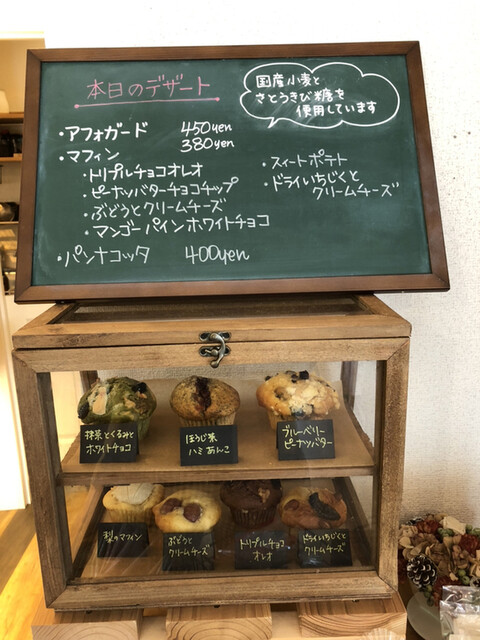 本日のデザート
国産小麦と
さとうきび糖を
使用しています
・アフォガード 450yen
・マフィン 380yen
・トリプルチョコオレオ
・ピーナッツバターチョコチップ
・ぶどうとクリームチーズ
・マンゴーパインホワイトチョコ
・スイートポテト
・ドライいちじくと
クリームチーズ
・パンナコッタ 400yen
抹茶とくるみと
ホワイトチョコ
ほうじ茶
ハミあんこ
ブルーベリー
ピーナッツバター
梨のマフィン
ぶどうと
クリームチーズ
トリプルチョコ
オレオ
ドライいちじくと
クリームチーズ